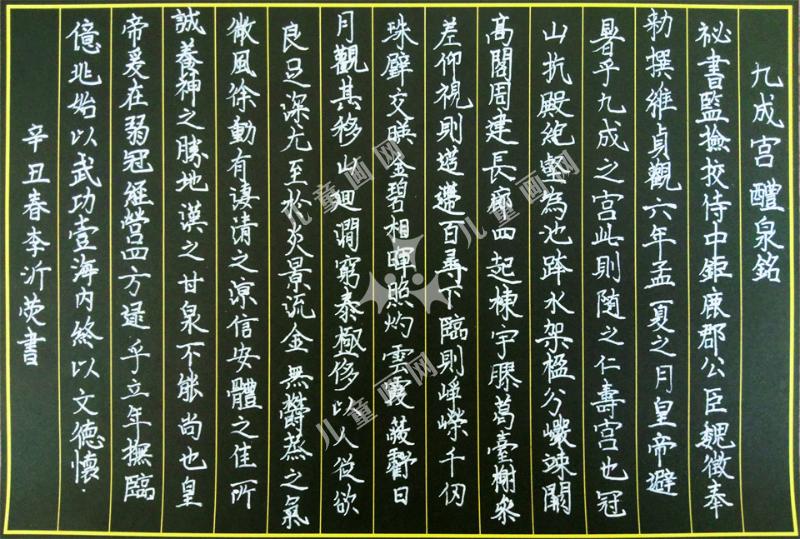 九成宫醴泉銘
祕書監撿挍侍中鉅鹿郡公臣魏徵奉
勅撰維貞觀六年孟夏之月皇帝避
暑乎九成之宫此則随之仁壽宫也冠
山抗殿絶壑為池跨水架楹分巖竦闕
髙閣周建長廊四起棟宇膠葛臺榭參
差仰視則迢遰百尋下臨則崢嶸千仞
珠壁交暎金碧相暉照灼雲霞蔽虧日
月觀其移山廻澗窮泰極侈以人從欲
良足深尤至於炎景流金無欝蒸之氣
微風徐動有淒清之凉信安體之佳所
誠養神之勝地漢之甘泉不能尚也皇
帝爰在弱冠經營四方逯乎立年撫臨
億兆始以武功壹海内終以文德懷
辛丑春李沂荧書
儿童画网
儿童画网
儿童画网
儿童画网